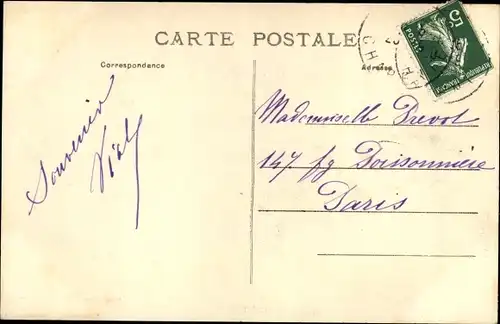 CARTE POSTALE
Correspondance
Adresse
5c
POSTES
REPUBLIQUE FRANÇAISE
Souvenir
Mademoiselle Prevot
147 fg Poissonnière
Paris